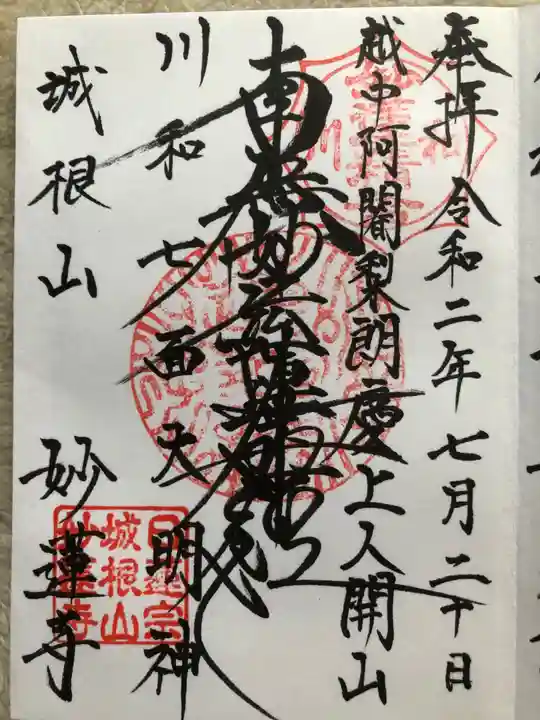 奉拝 令和二年七月二十日
越中阿闍梨朗慶上人開山
南無妙法蓮華経
川和七面天明神
城根山 妙蓮寺
日蓮宗
城根山
妙蓮寺